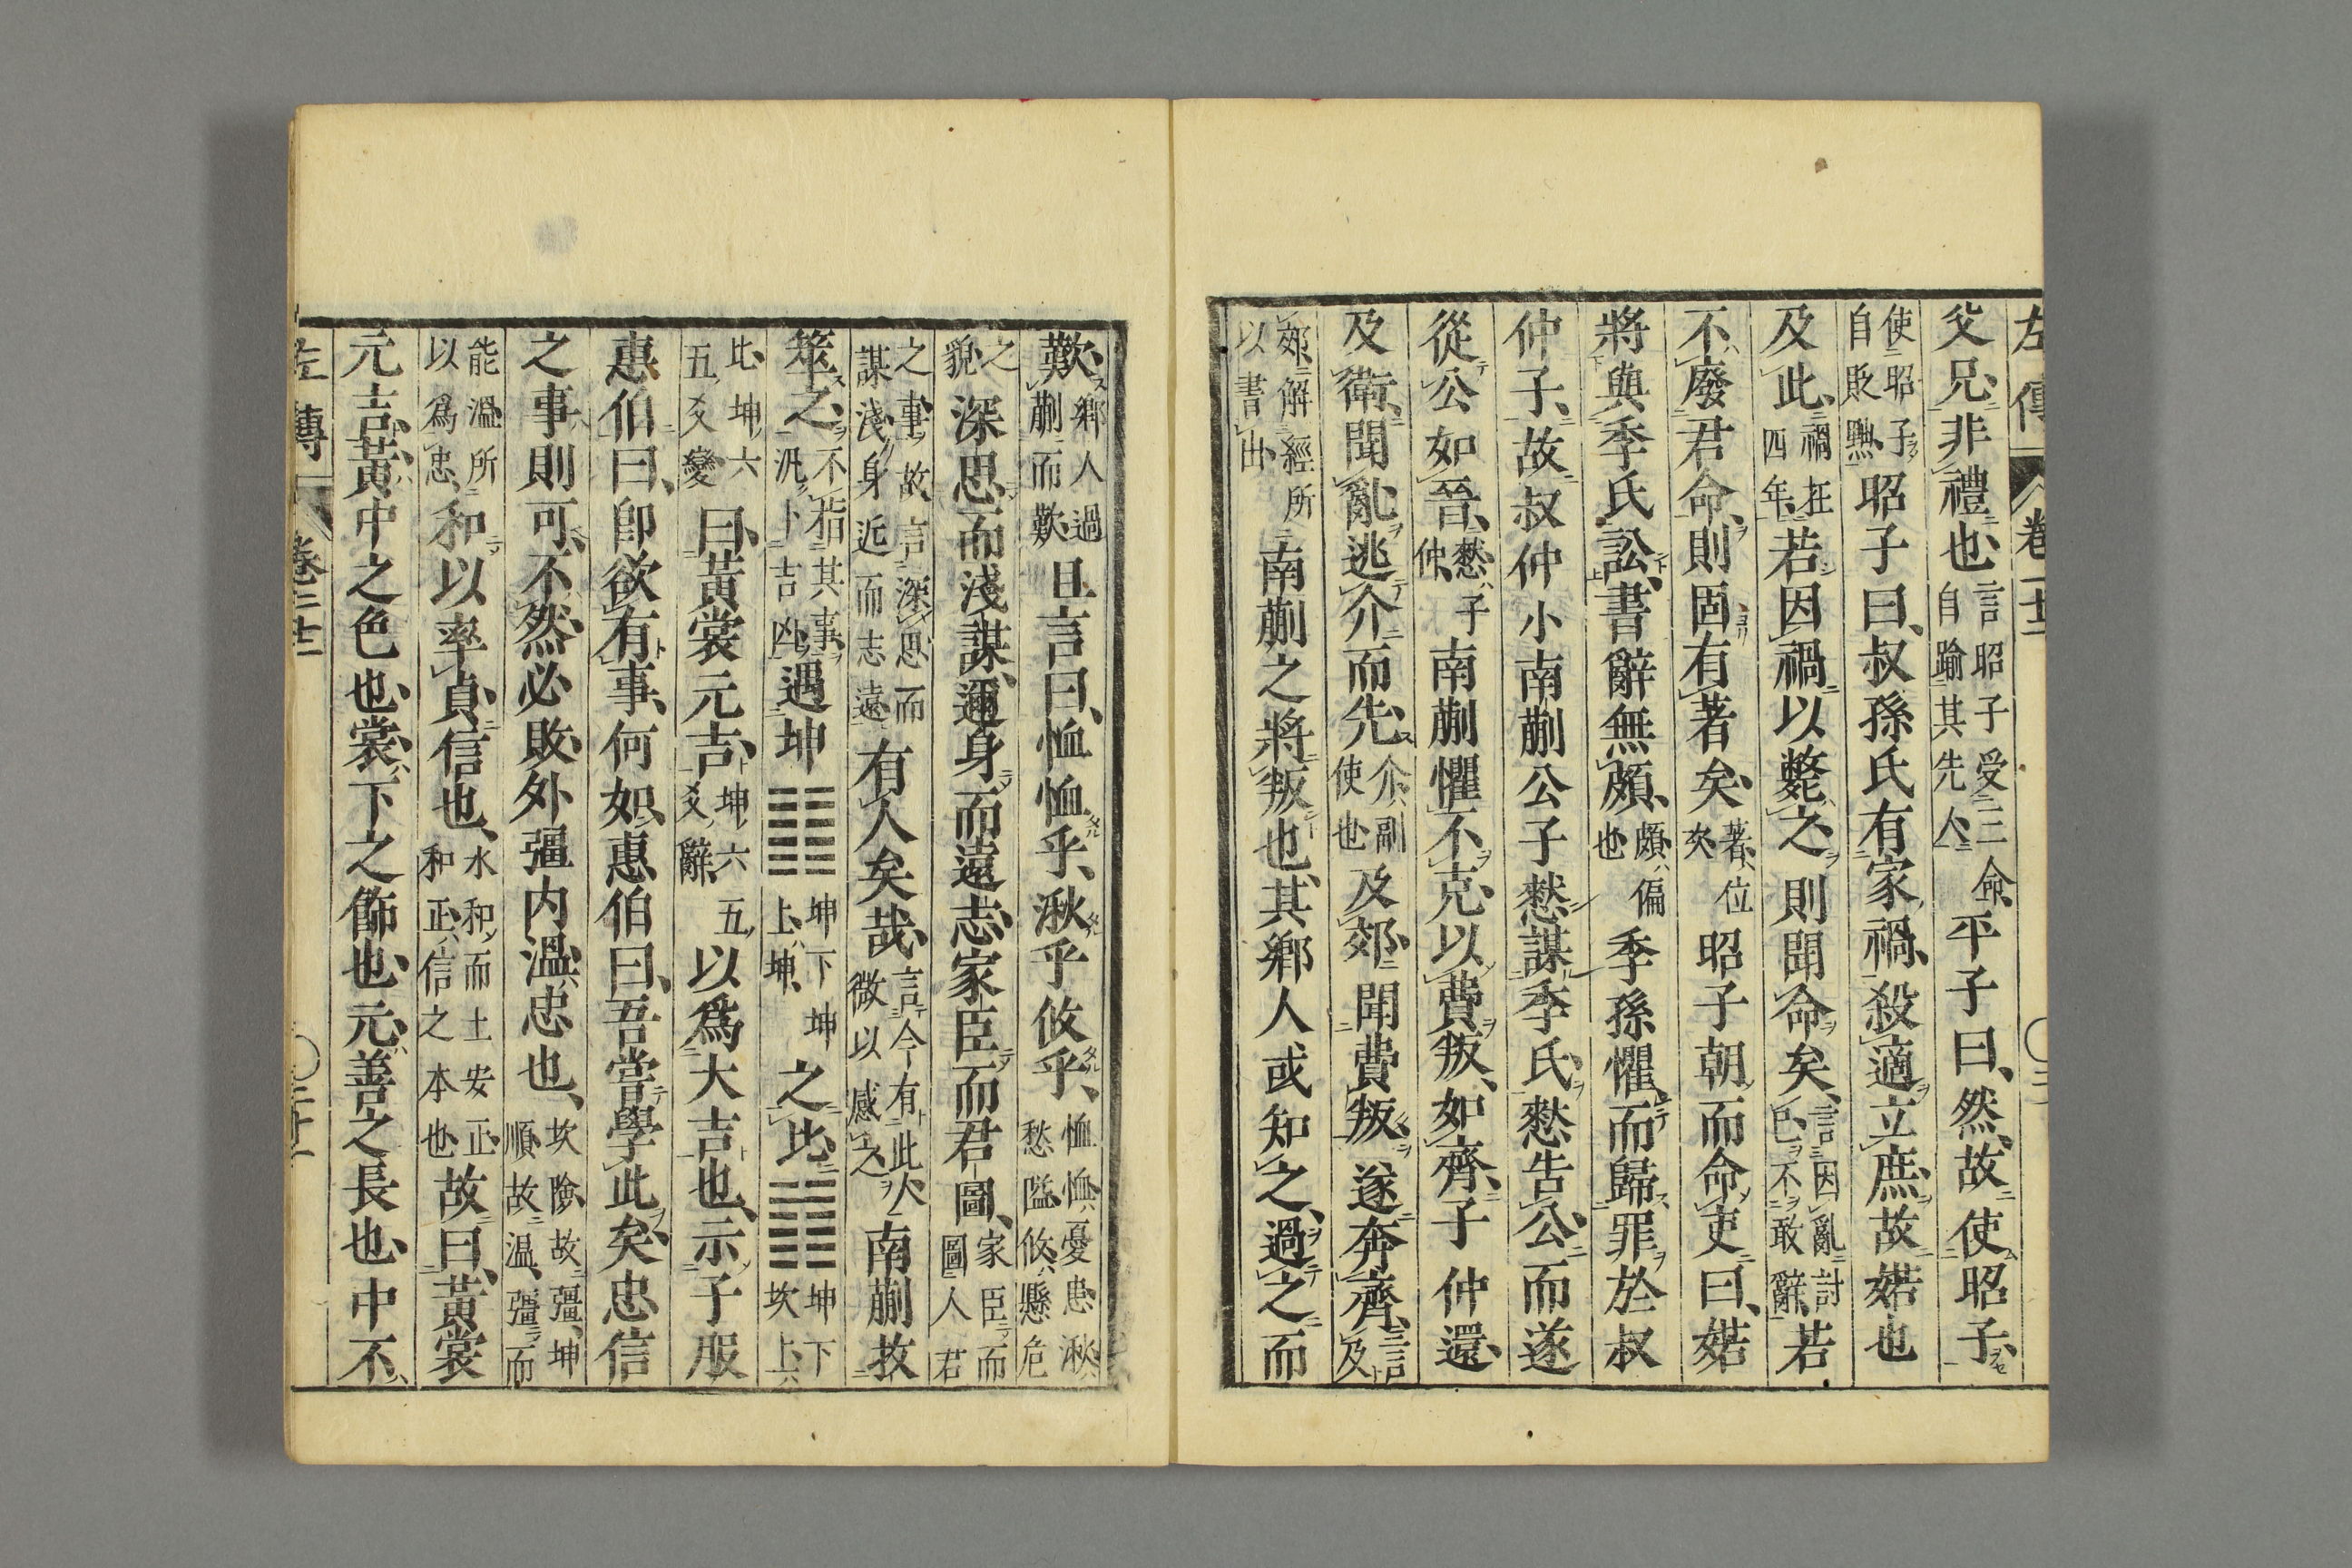 左傳 卷二十二
父兄、非禮也、言昭子受三命、自踰其先人、平子曰、然、故使昭子、
使昭子自貶黜、昭子曰、叔孫氏有家禍、殺適立庶、故婼也
及此、禍在四年、若因禍以斃之、則聞命矣、言因亂討己、不敢辭、若
不廢君命、則固有著矣、著、位次、昭子朝而命吏曰、婼
將與季氏訟、書辭無頗、頗、偏也、季孫懼而歸罪於叔
仲子、故叔仲小南蒯公子憖謀季氏、憖告公、而遂
從公如晉、憖、子仲、南蒯懼不克、以費叛、如齊、子仲還、
及衛、聞亂、逃介而先、介、副使也、及郊、聞費叛、遂奔齊、言及
郊、解經所以書出、南蒯之將叛也、其鄉人或知之、過之而
歎、鄉人過蒯而歎、且言曰、恤恤乎、湫乎攸乎、恤恤、憂患、湫、愁隘、攸、懸危
之貌、深思而淺謀、邇身而遠志、家臣而君圖、家臣而圖人君
之事、故言深思而謀淺、身近而志遠、有人矣哉、言今有此人、微以感之、南蒯枚
筮之、不指其事、汎卜吉凶、遇坤䷁坤下坤上、坤、之比䷇坤下坎上、
比、坤六五爻變、曰、黃裳元吉、坤六五爻辭、以爲大吉也、示子服
惠伯曰、卽欲有事、何如、惠伯曰、吾嘗學此矣、忠信
之事則可、不然必敗、外彊内溫、忠也、坎險故彊、坤順故温、彊而
能溫、所以爲忠、和以率貞、信也、水和而土安正、和正、信之本也、故曰、黃裳
元吉、黃、中之色也、裳、下之飾也、元、善之長也、中不
左傳 卷二十二